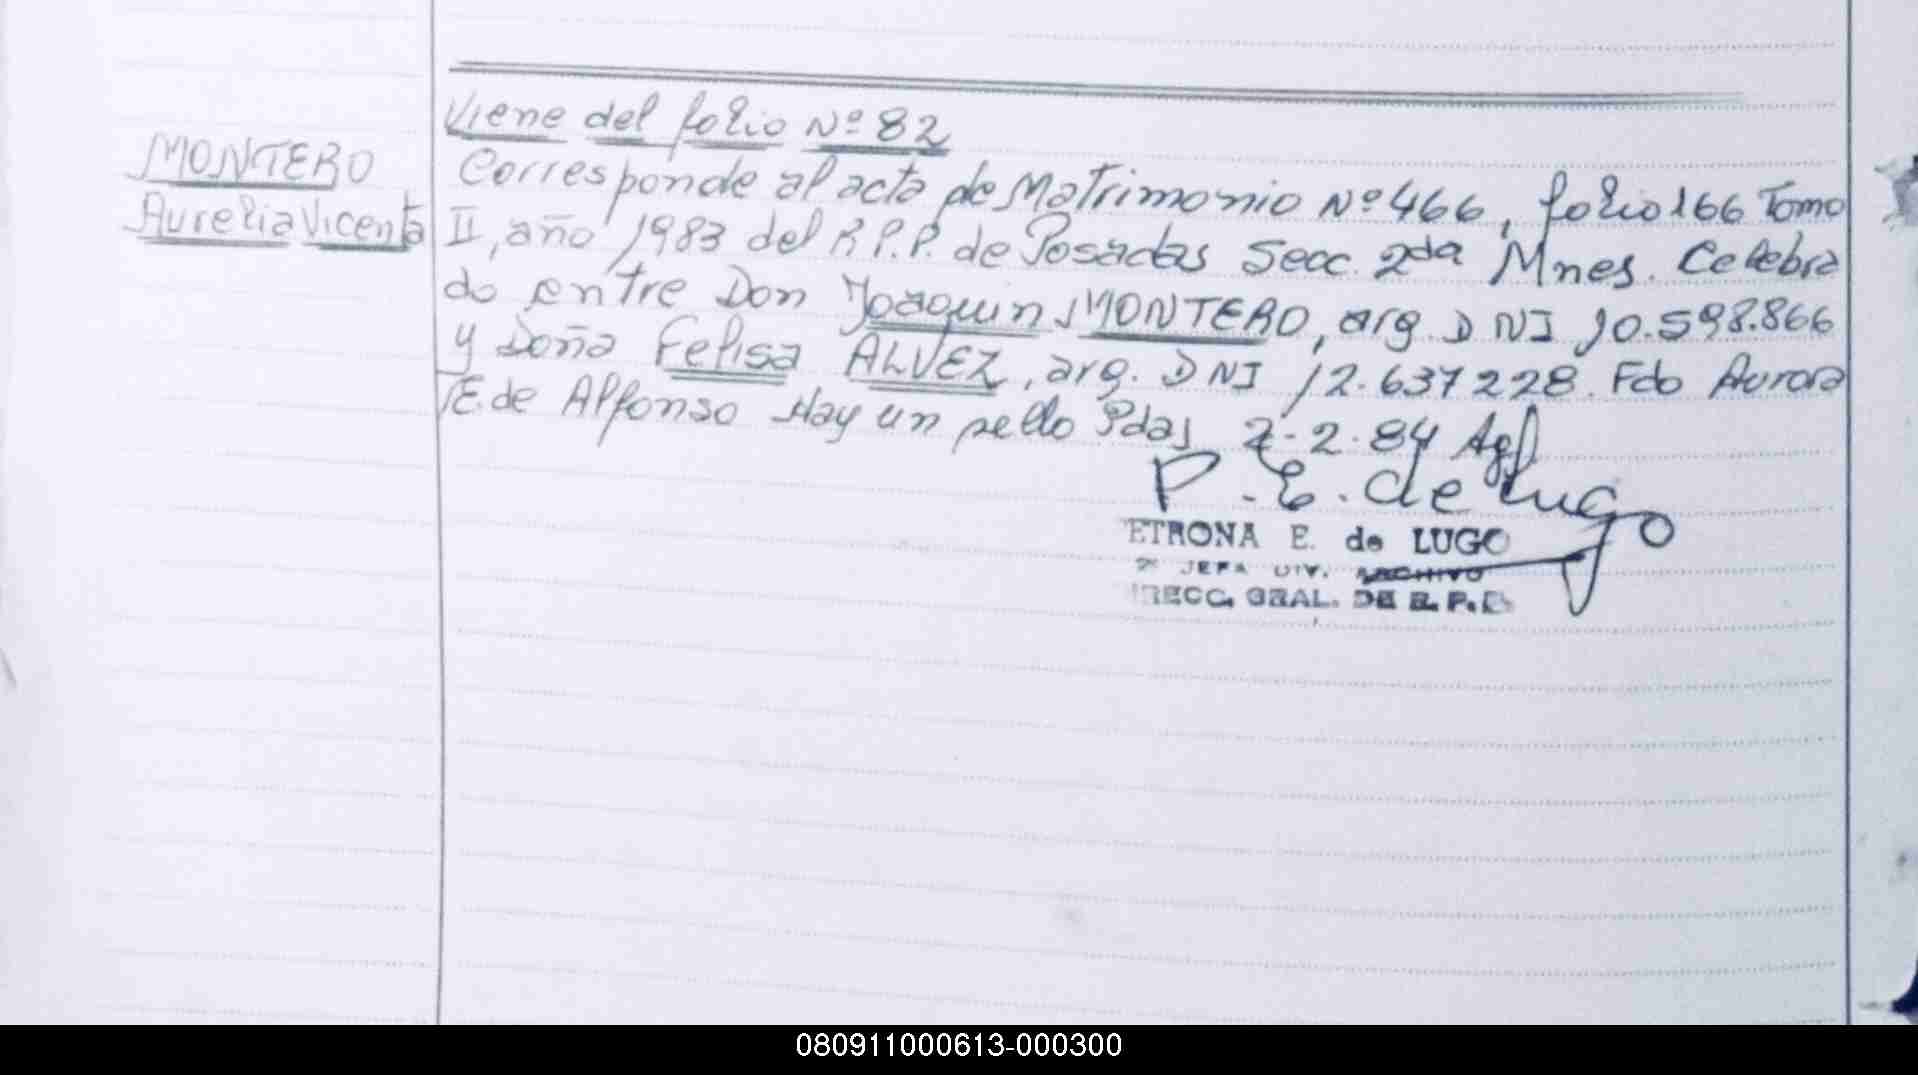 Viene del folio Nº 82
MONTERO
Aurelia Vicenta
Corresponde al acta de Matrimonio Nº 466, folio 166 Tomo
II, año 1983 del R.P.P. de Posadas Secc. 2da Mnes. Celebra
do entre Don Joaquin MONTERO, arg. DNI 10.598.866
y Doña Felisa ALVEZ, arg. DNI 12.637228. Fdo Aurora
E. de Alfonso Hay un sello Pdas 2-2-84
P. E. de Lugo
ETRONA E. de LUGO
JEFA DIV. ARCHIVO
IRECC. GRAL. DE R. P. P.
080911000613-000300